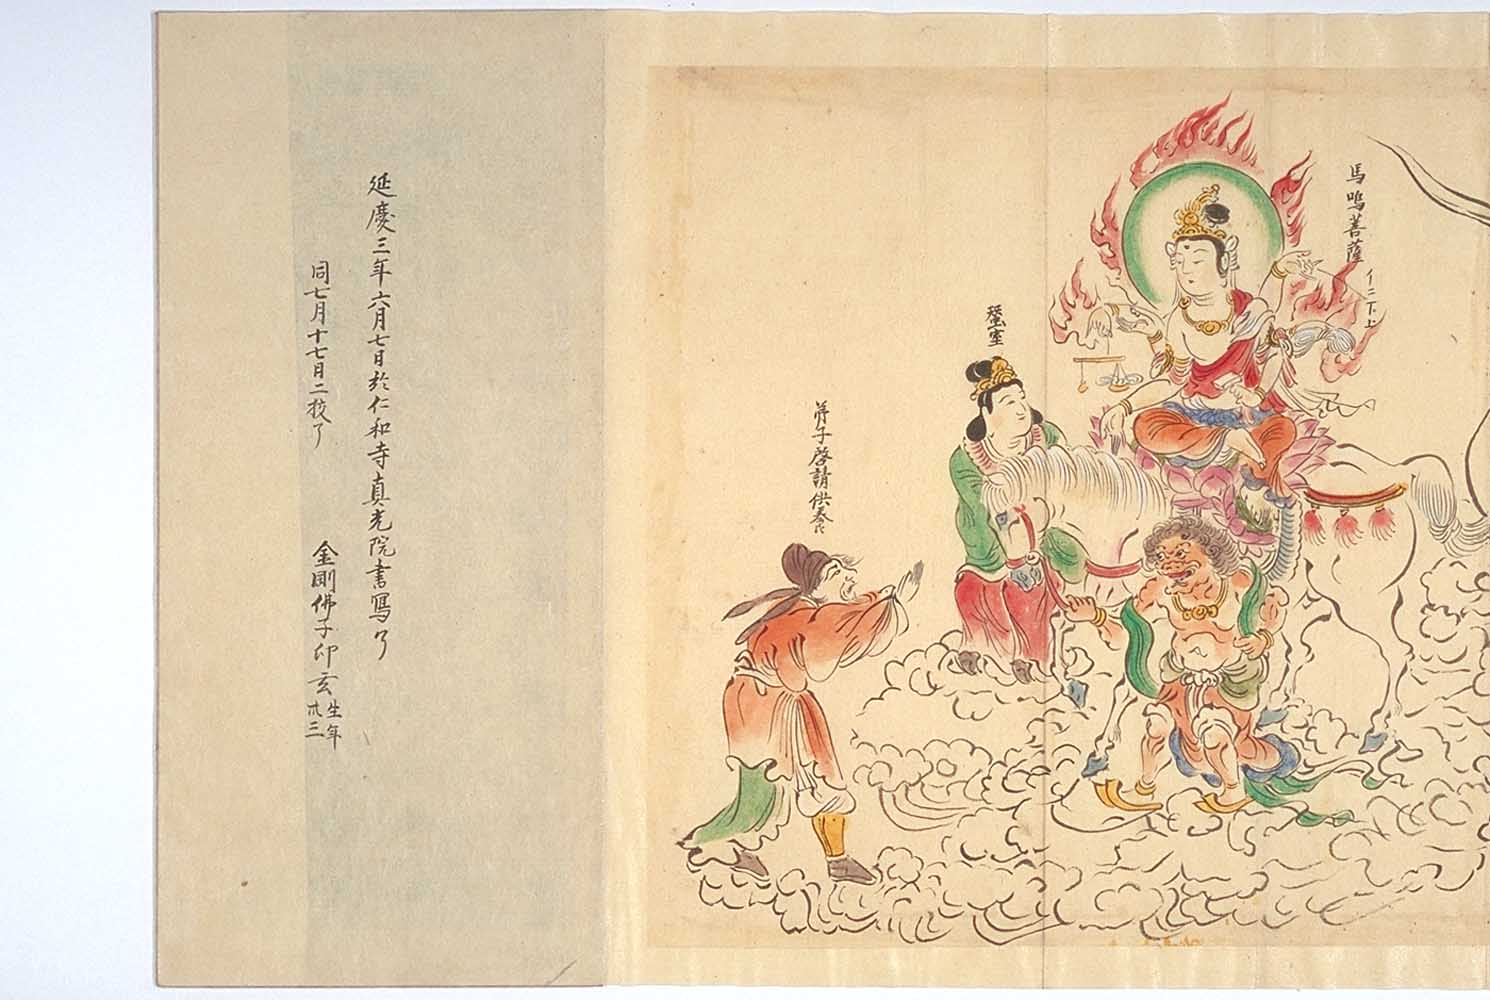 馬鳴菩薩
亻二下上
蚕室
弟子啓請供養
延慶三年六月七日於仁和寺真光院書寫了
同七月十七日二校了
金剛佛子印玄
生年
廿三